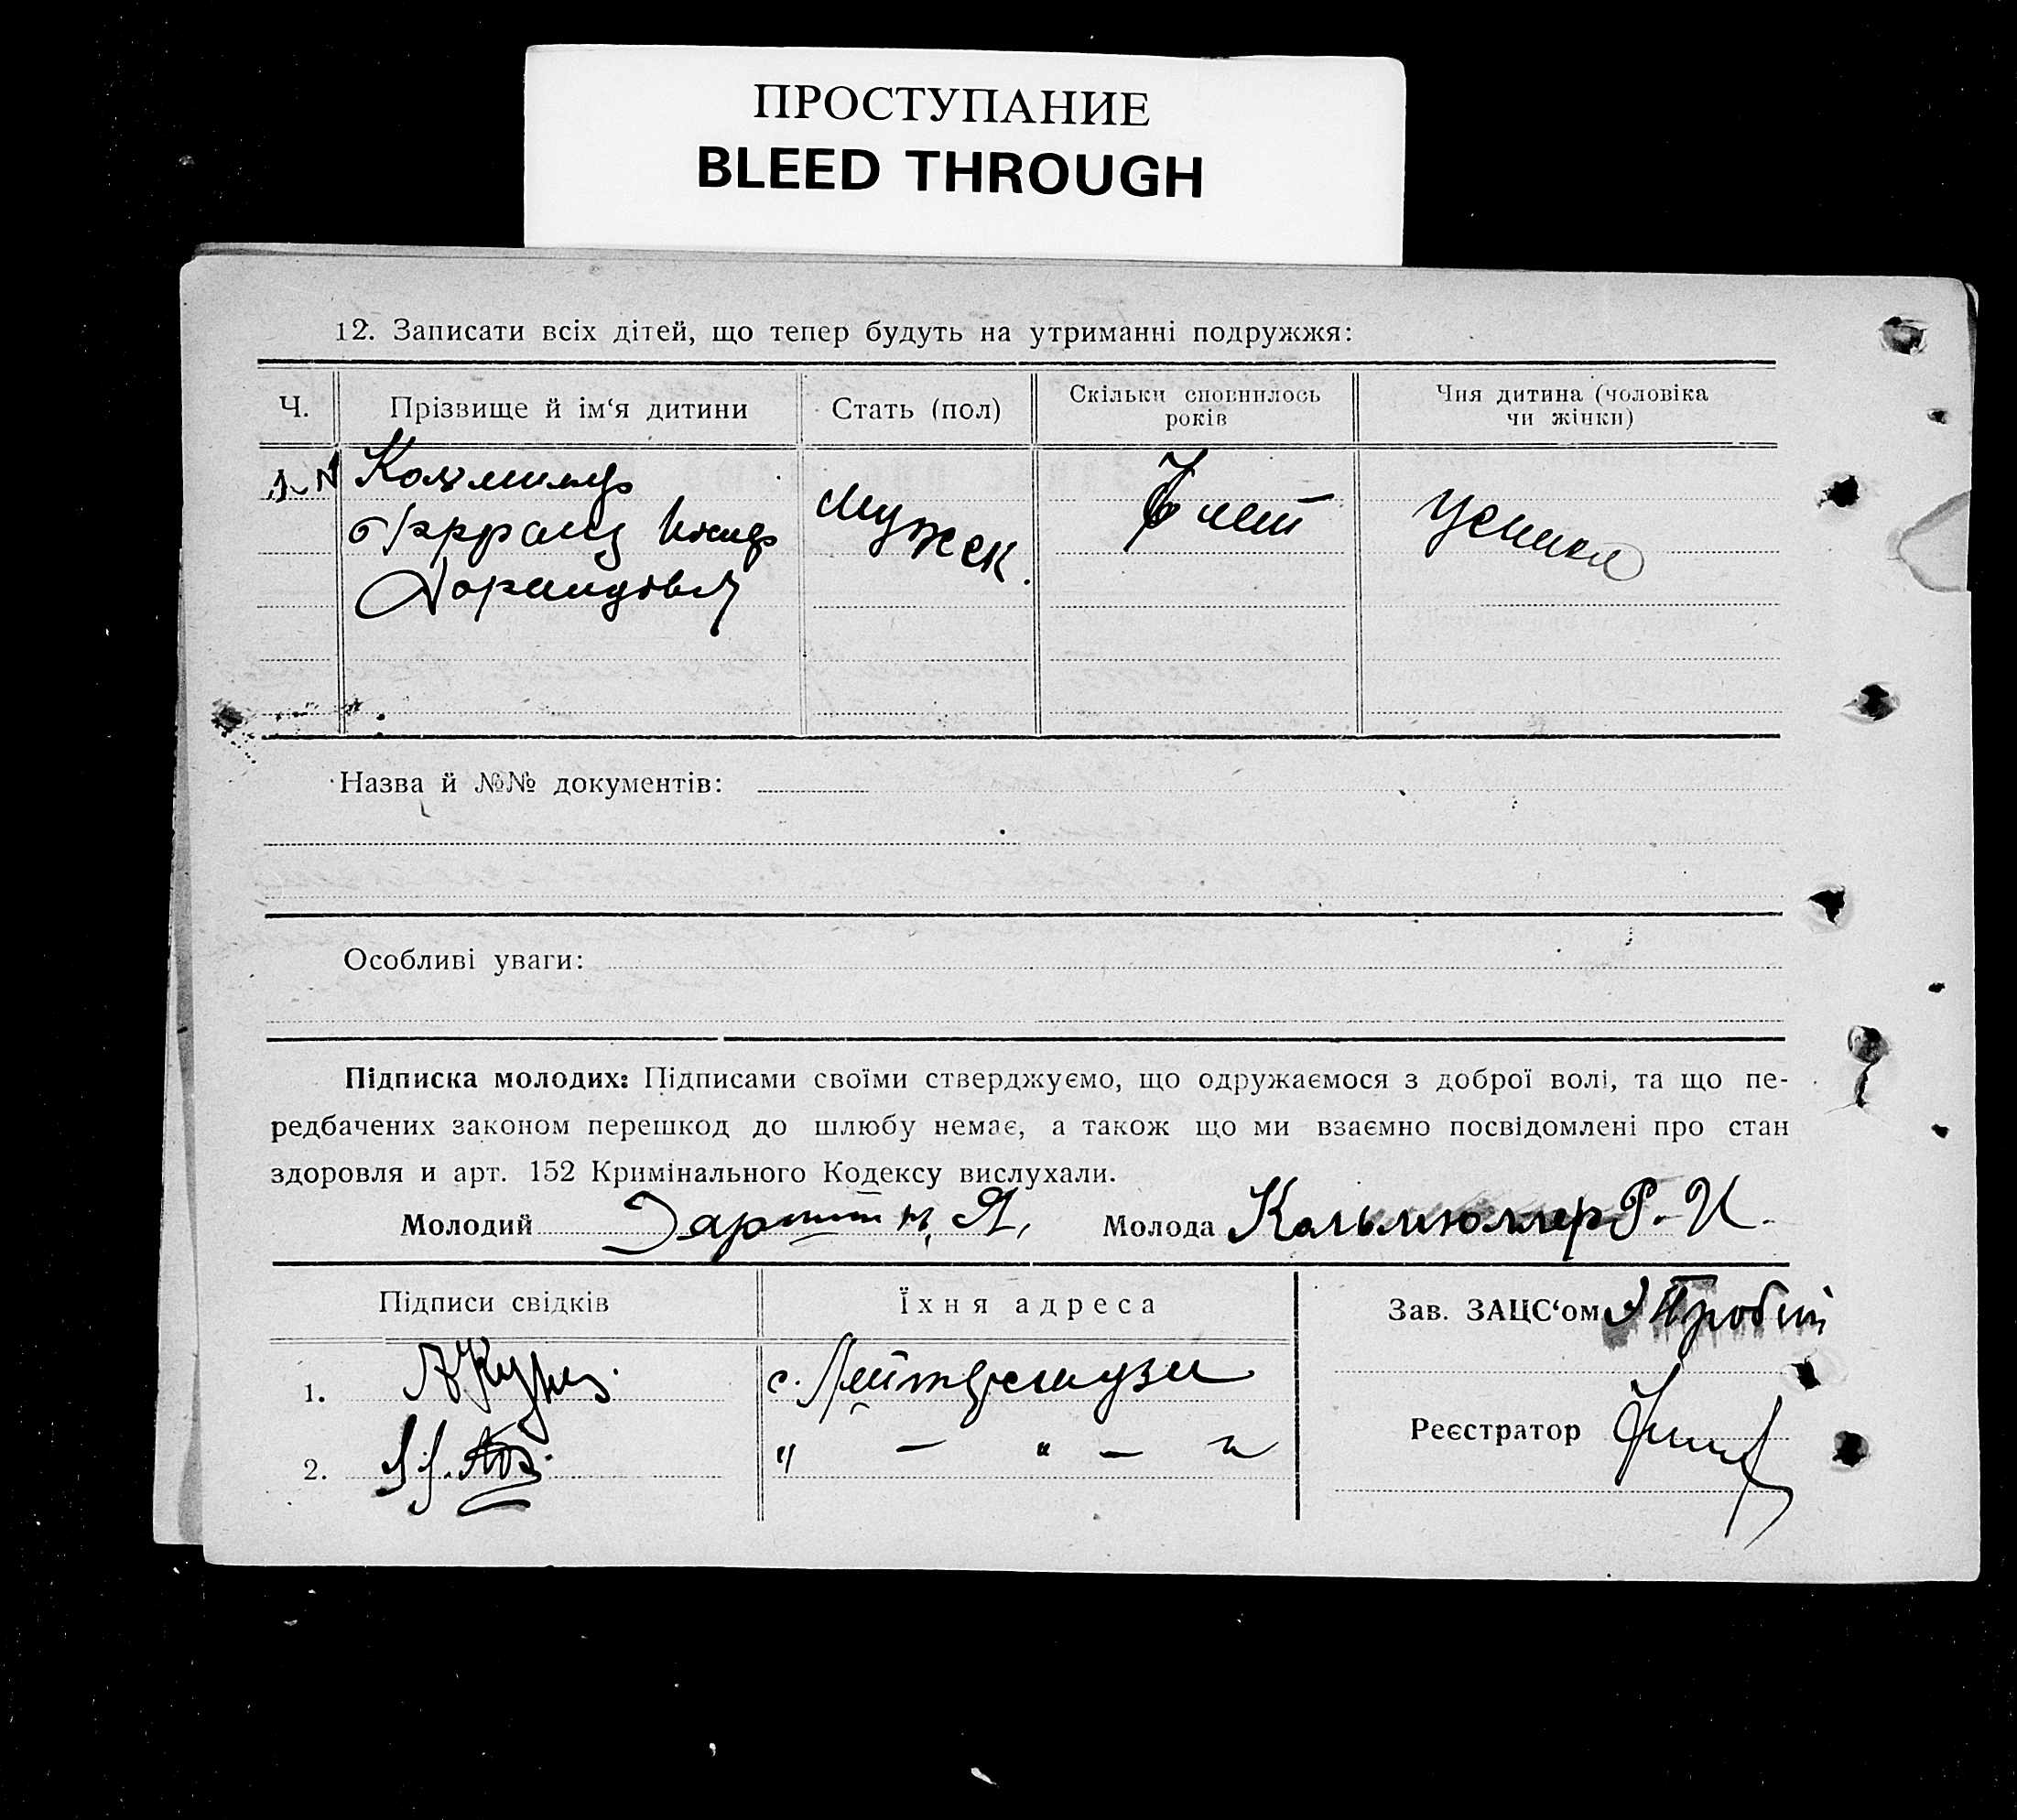 ПРОСТУПАНИЕ
BLEED THROUGH
12. Записати всіх дітей, що тепер будуть на утриманні подружжя:
Ч.
Прізвище й ім‘я дитини
Стать (пол)
Скільки сповнилось
років
Чия дитина (чоловіка
чи жінки)
Мужек.
лет
Назва й №№ документів:
Особливі уваги:
Підписка молодих: Підписами своїми стверджуємо, що одружаємося з доброї волі, та що пе-
редбачених законом перешкод до шлюбу немає, а також що ми взаємно посвідомлені про стан
здоровля и арт. 152 Кримінального Кодексу вислухали.
Молодий
Молода Кальмюллер Р. И.
Підписи свідків
Їхня адреса
Зав. ЗАЦС‘ом
1.
с.
2.
" — " — "
Реєстратор